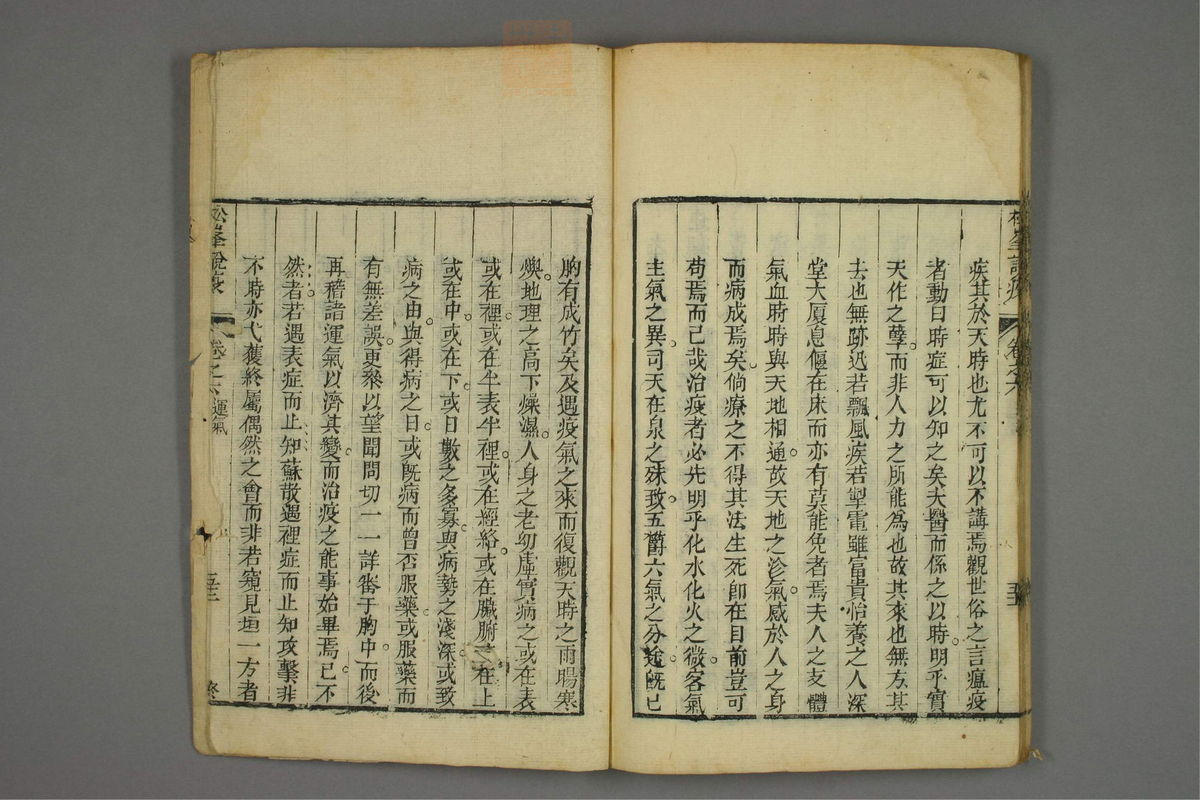 疾其於天時也尤不可以不講焉觀世俗之言瘟疫
者動曰時症可以知之矣夫醫而係之以時明乎實
天作之孽而非人力之所能為也故其來也無方其
去也無跡迅若飄風疾若掣電雖富貴怡養之人深
堂大厦息偃在床而亦有莫能免者焉夫人之支體
氣血時時與天地相通故天地之沴氣感於人之身
而病成焉矣倘療之不得其法生死卽在目前豈可
苟焉而已哉治疫者必先明乎化水化火之微客氣
主氣之異司天在泉之殊致五欝六氣之分途旣已
胸有成竹矣及遇疫氣之來而復觀天時之雨暘寒
燠地理之高下燥濕人身之老幼虛實病之或在表
或在裡或在半表半裡或在經絡或在臟腑或在上
或在中或在下或日數之多寡與病勢之淺深或致
病之由與得病之日或旣病而曾否服藥或服藥而
有無差誤更叅以望聞問切一一詳審于胸中而後
再稽諸運氣以濟其變而治疫之能事始畢焉已不
然者若遇表症而止知蘇散遇裡症而止知攻擊非
不時亦弋獲終屬偶然之會而非若窺見垣一方者
松峯說疫 卷之六 運氣